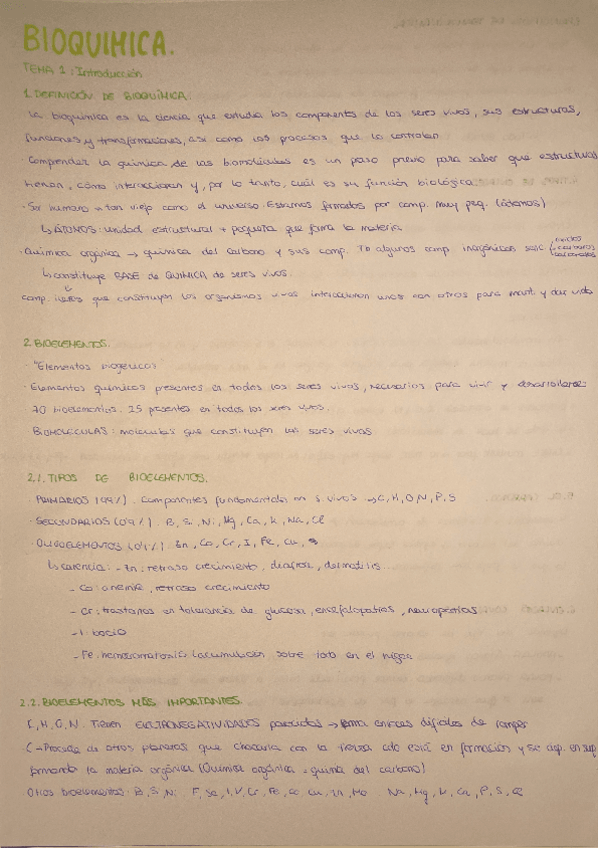 BIOQUIMICA.
TEMA 1: Introducción
1. DEFINICIÓN DE BIOQUÍMICA.
La bioquímica es la ciencia que estudia los componentes de los seres vivos, sus estructuras,
funciones y transformaciones, así como los procesos que lo controlan
Comprender la química de las biomoléculas es un paso previo para saber que estructuras
tienen, cómo interaccionan y, por lo tanto, cuál es su función biológica.
· Ser humano → tan viejo como el universo. Estamos formados por comp. muy peq. (átomos)
↳ ÁTOMOS: unidad estructural + pequeña que forma la materia
· Química orgánica → química del carbono y sus comp. Tb algunos comp inorgánicos
↳ constituye BASE de QUÍMICA de seres vivos.
comp. que construyen los organismos vivos interaccionan unos con otros para mant. y dar vida
2. BIOELEMENTOS.
· "Elementos biogénicos"
· Elementos químicos presentes en todos los seres vivos, necesarios para vivir y desarrollarse
70 bioelementos. 25 presentes en todos los seres vivos.
BIOMOLÉCULAS: moléculas que constituyen los seres vivos
2.1. TIPOS DE BIOELEMENTOS.
· PRIMARIOS (99%). Componentes fundamentales en s. vivos → C, H, O, N, P, S
· SECUNDARIOS (0'9%). B, Si, Ni, Mg, Ca, K, Na, Cl
· OLIGOELEMENTOS (0'1%). Zn, Co, Cr, I, Fe, Cu,
↳ carencia: - Zn: retraso crecimiento, diarrea, dermatitis...
- Co: anemia, retraso crecimiento
- Cr: trastornos en tolerancia de glucosa, encefalopatías, neuropatías
- I: bocio
- Fe: hemocromatosis (acumulación sobre todo en el hígado
2.2. BIOELEMENTOS MÁS IMPORTANTES.
C, H, O, N. Tienen ELECTRONEGATIVIDADES parecidas → forma enlaces difíciles de romper
· C → Procede de otros planetas que chocaría con la tierra cdo esta en formación y se dep. en sup
formando la materia orgánica (Química orgánica = química del carbono)
· Otros bioelementos: B, S, Ni F, Se, I, V, Cr, Fe, Co Cu, Zn, Mo Na, Mg, K, Ca, P, S, Cl